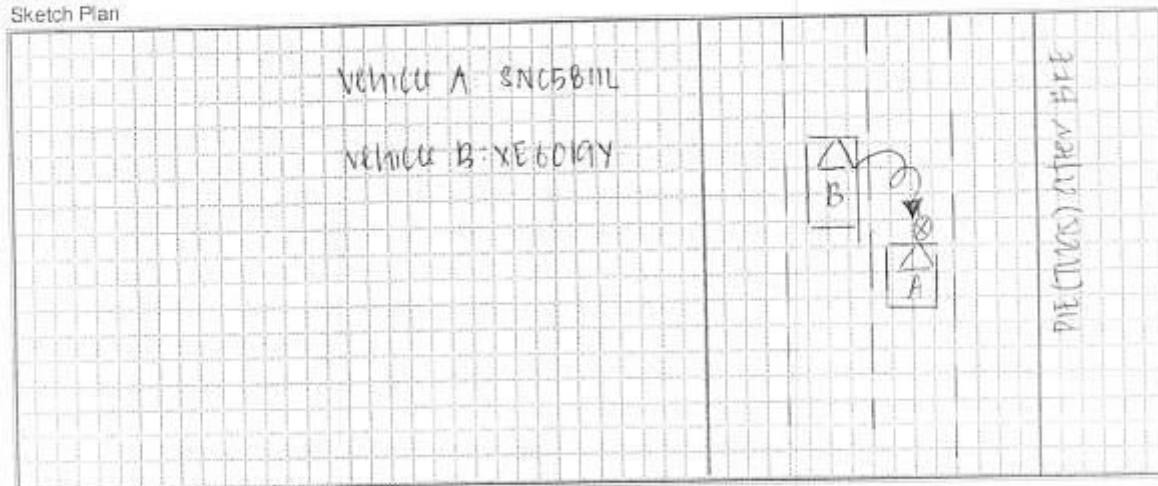 Sketch Plan
Vehicle A SNC5811L
Vehicle B: XE6019Y
B
A
PIE (TUAS) after BKE